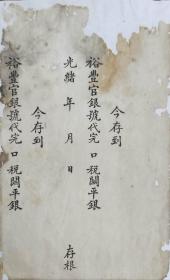 今存到
裕豐官銀號代完口稅關平銀
光緒 年 月 日
存根
今存到
裕豐官銀號代完口稅關平銀